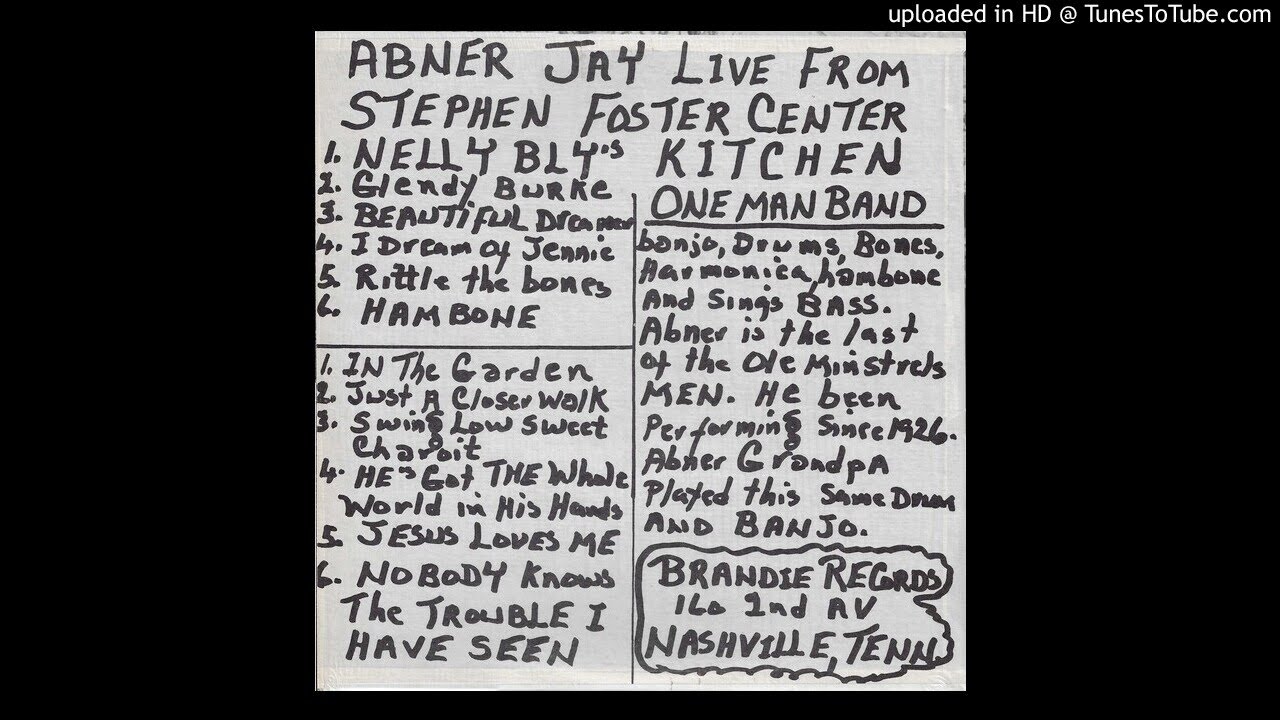 uploaded in HD @ TunesToTube.com
ABNER JAY LIVE FROM
STEPHEN FOSTER CENTER
KITCHEN
1. NELLY BLY's
2. Glendy BURKE
3. BEAUTIFUL Dreamer
4. I Dream of Jennie
5. Rittle the bones
6. HAMBONE
1. IN The Garden
2. Just A Closer Walk
3. Swing Low Sweet
Charoit
4. HE's Got THE Whole
World in His Hands
5. JESUS LOVES ME
6. NOBODY Knows
The TROUBLE I
HAVE SEEN
ONE MAN BAND
banjo, Drums, Bones,
Harmonica, hambone
And Sings BASS.
Abner is the last
of the Ole Minstrels
MEN. He been
Performing Since 1926.
Abner GrandpA
Played this Same Drum
AND BANJO.
BRANDIE RECORDS
160 2nd AV
NASHVILLE, TENN.